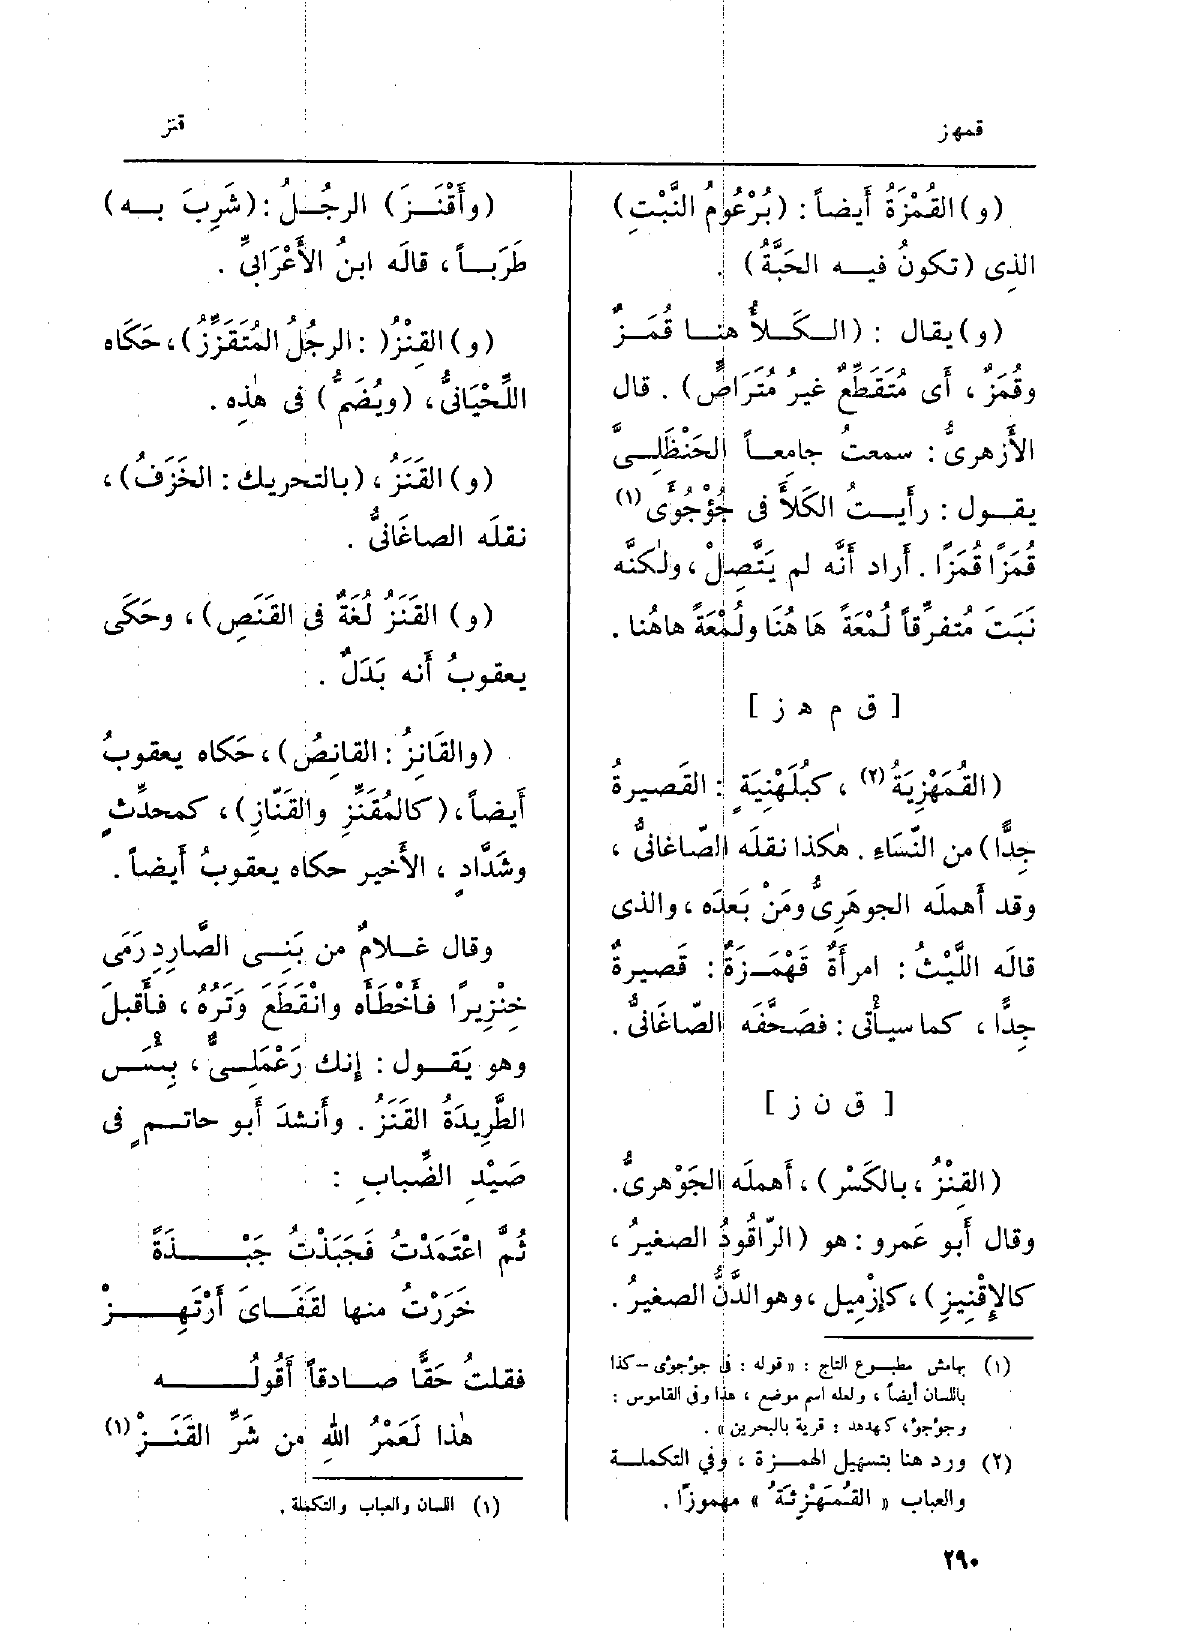 قمهز
قنز
(و) القُمْزَةُ أَيضاً : (بُرْعُومُ النَّبْتِ)
الذى (تكونُ فيـه الحَبَّةُ) .
(و) يقال : (الـكَـلأُ هنـا قُمَـزٌ
وقُمَزٌ ، أَى مُتَقَطِّعٌ غيرُ مُتَرَاصٍّ) . قال
الأَزهرىُّ : سمعتُ جامعـاً الحَنْظَلِـىَّ
يقـول : رأَيـتُ الكَلأَ فى جُؤْجُؤَى (١)
قُمَزًا قُمَزًا . أَراد أَنَّه لم يَتَّصِلْ ، ولٰكنَّه
نَبَتَ مُتفرِّقاً لُمْعَةً هَا هُنَا ولُمْعَةً هاهُنا .
[ ق م ه ز ]
(القُمَهْزِيَةُ (٢) ، كبُلَهْنِيَةٍ : القَصِيرةُ
جِدًّا) من النِّسَاءِ . هٰكذا نقلَه الصّاغانىُّ ،
وقد أَهملَه الجوهَرِىُّ ومَنْ بَعدَه ، والذى
قالَه اللَّيْثُ : امرأَةٌ قَهْمَـزَةٌ : قَصيرةٌ
جِدًّا ، كما سيأْتى : فصَحَّفَه الصّاغَانىُّ .
[ ق ن ز ]
(القِنْزُ ، بالكَسْر) ، أَهملَه الجَوْهرىُّ.
وقال أَبو عَمرو : هو (الرّاقُودُ الصغيرُ ،
كالإِقْنِيزِ) ، كإِزْمِيل ، وهو الدَّنُّ الصغيرُ .
(١) بهامش مطبـوع التاج : « قوله : فى جؤجؤى – كذا
باللسان أيضاً ، ولعله اسم موضع ، هذا وفى القاموس :
وجؤجؤ، كهدهد : قرية بالبحرين» .
(٢) ورد هنا بتسهيل الهمـزة ، وفي التكملـة
والعباب « القُمَهْزِئَةُ » مهموزًا .
٢٩٠
(وأَقْنَـزَ) الرجُـلُ : (شَرِبَ بـه)
طَرَبـاً ، قالَه ابنُ الأَعْرَابىِّ .
(و) القِنْزُ( : الرجُلُ المُتَقَزِّزُ) ، حَكَاه
اللِّحْيَانىُّ ، (ويُضَمُّ) فى هٰذِه .
(و) القَنَزُ ، (بالتحريك : الخَزَفُ) ،
نقلَه الصاغَانىُّ .
(و) القَنَزُ لُغَةٌ فى القَنَصِ) ، وحَكَى
يعقوبُ أَنه بَدَلٌ .
(والقَانِزُ : القانِصُ) ، حَكاه يعقوبُ
أَيضاً ، (كالمُقَنِّزِ والقَنّازِ) ، كمحدِّثٍ
وشَدَّادٍ ، الأَخير حكاه يعقوبُ أَيضاً .
وقال غـلامٌ من بَنِـى الصّارِدِ رَمَى
خِنْزِيرًا فأَخْطَأَه وانْقَطَعَ وَتَرُهُ ، فأَقبلَ
وهو يَقـول : إِنك رَعْمَلِـىٌّ ، بِئْـسَ
الطَّرِيدَةُ القَنَزُ . وأَنشدَ أَبو حاتـمٍ فى
صَيْدِ الضِّبابِ :
ثُمَّ اعْتَمَدْتُ فَجَبَذْتُ جَبْـــذَةً
خَرَرْتُ منها لقَفَـاىَ أَرْتَهِـــزْ
فقلتُ حَقًّا صـادقاً أَقُولُـــه
هٰذا لَعَمْرُ اللهِ من شَرِّ القَنَـزْ (١)
(١) اللسان والعباب والتكملة .